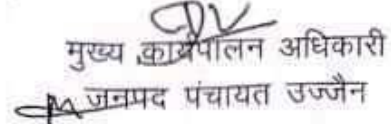 मुख्य कार्यपालन अधिकारी
जनपद पंचायत उज्जैन